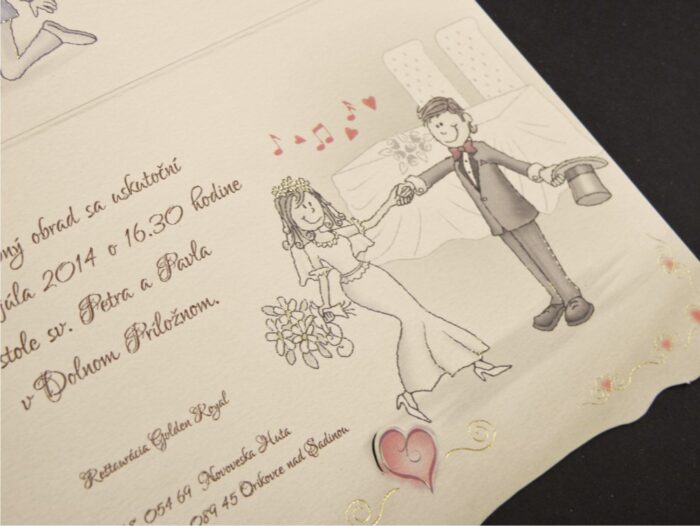 ný obrad sa uskutoční
jála 2014 o 16.30 hodine
stole sv. Petra a Pavla
v Dolnom Priložnom.
Reštaurácia Golden Royal
054 69 Novoveska Huta
089 45 Orikovce nad Sadinou